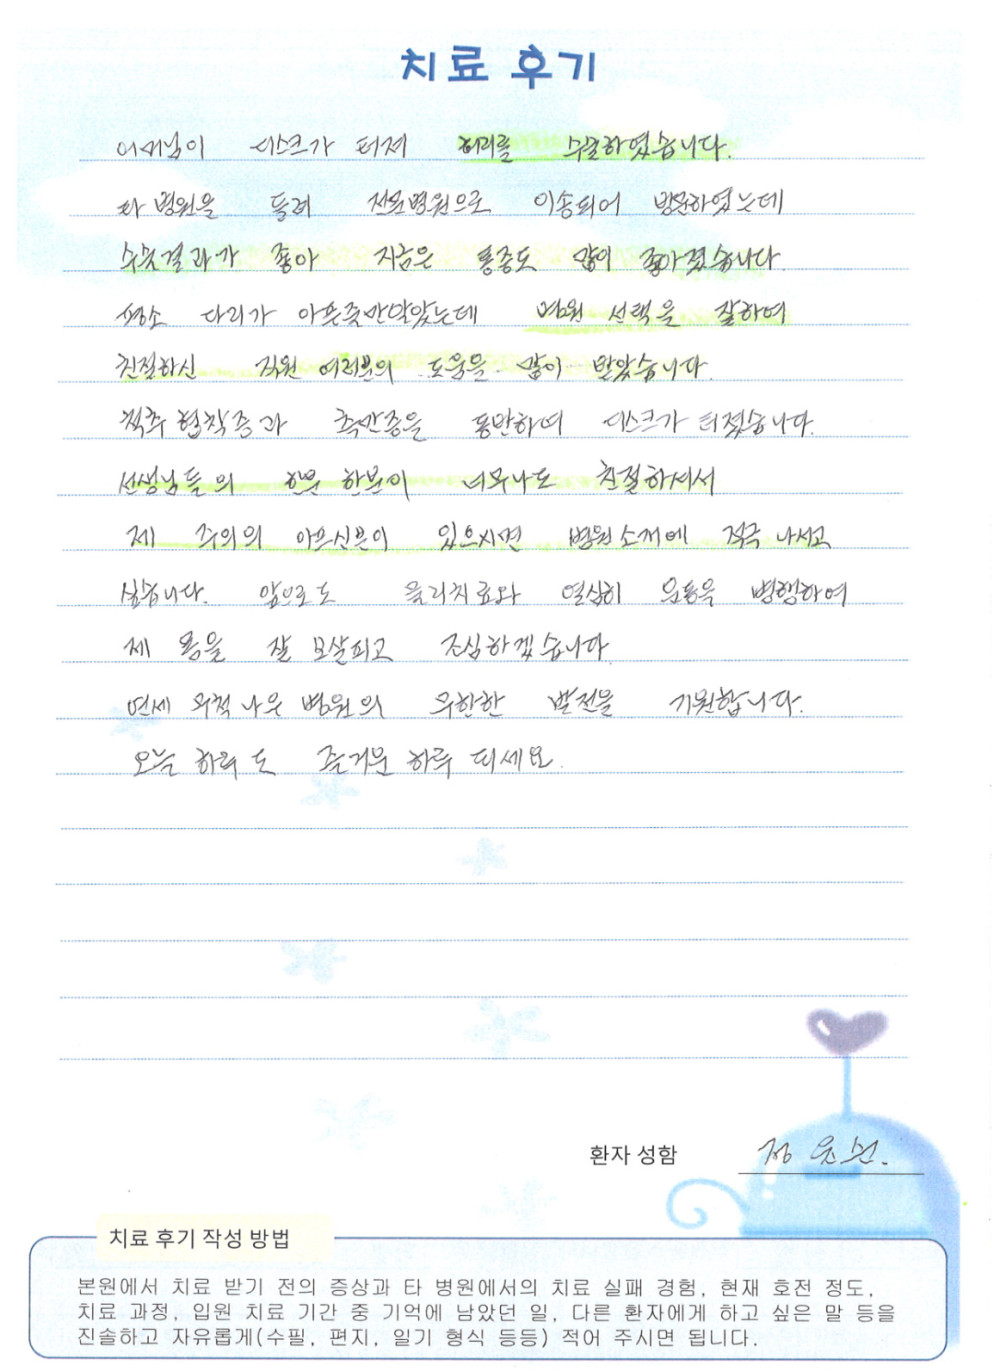 치료 후기
어머님이 디스크가 터져 허리를 수술하였습니다.
타 병원을 들려 전문병원으로 이송되어 방문하였는데
수술결과가 좋아 지금은 통증도 많이 좋아졌습니다.
평소 다리가 아픈줄만알았는데 병원 선택을 잘하여
친절하신 직원 여러분의 도움을 많이 받았습니다.
척추 협착증과 측만증을 동반하여 디스크가 터졌습니다.
선생님들의 한분 한분이 너무나도 친절하셔서
제 주위의 아프신분이 있으시면 병원소개에 적극 나서고
싶습니다. 앞으로도 물리치료와 열심히 운동을 병행하여
제 몸을 잘 보살피고 조심하겠습니다.
연세 무척나은 병원의 무한한 발전을 기원합니다.
오늘 하루도 즐거운 하루 되세요.
환자 성함 정
치료 후기 작성 방법
본원에서 치료 받기 전의 증상과 타 병원에서의 치료 실패 경험, 현재 호전 정도,
치료 과정, 입원 치료 기간 중 기억에 남았던 일, 다른 환자에게 하고 싶은 말 등을
진솔하고 자유롭게(수필, 편지, 일기 형식 등등) 적어 주시면 됩니다.